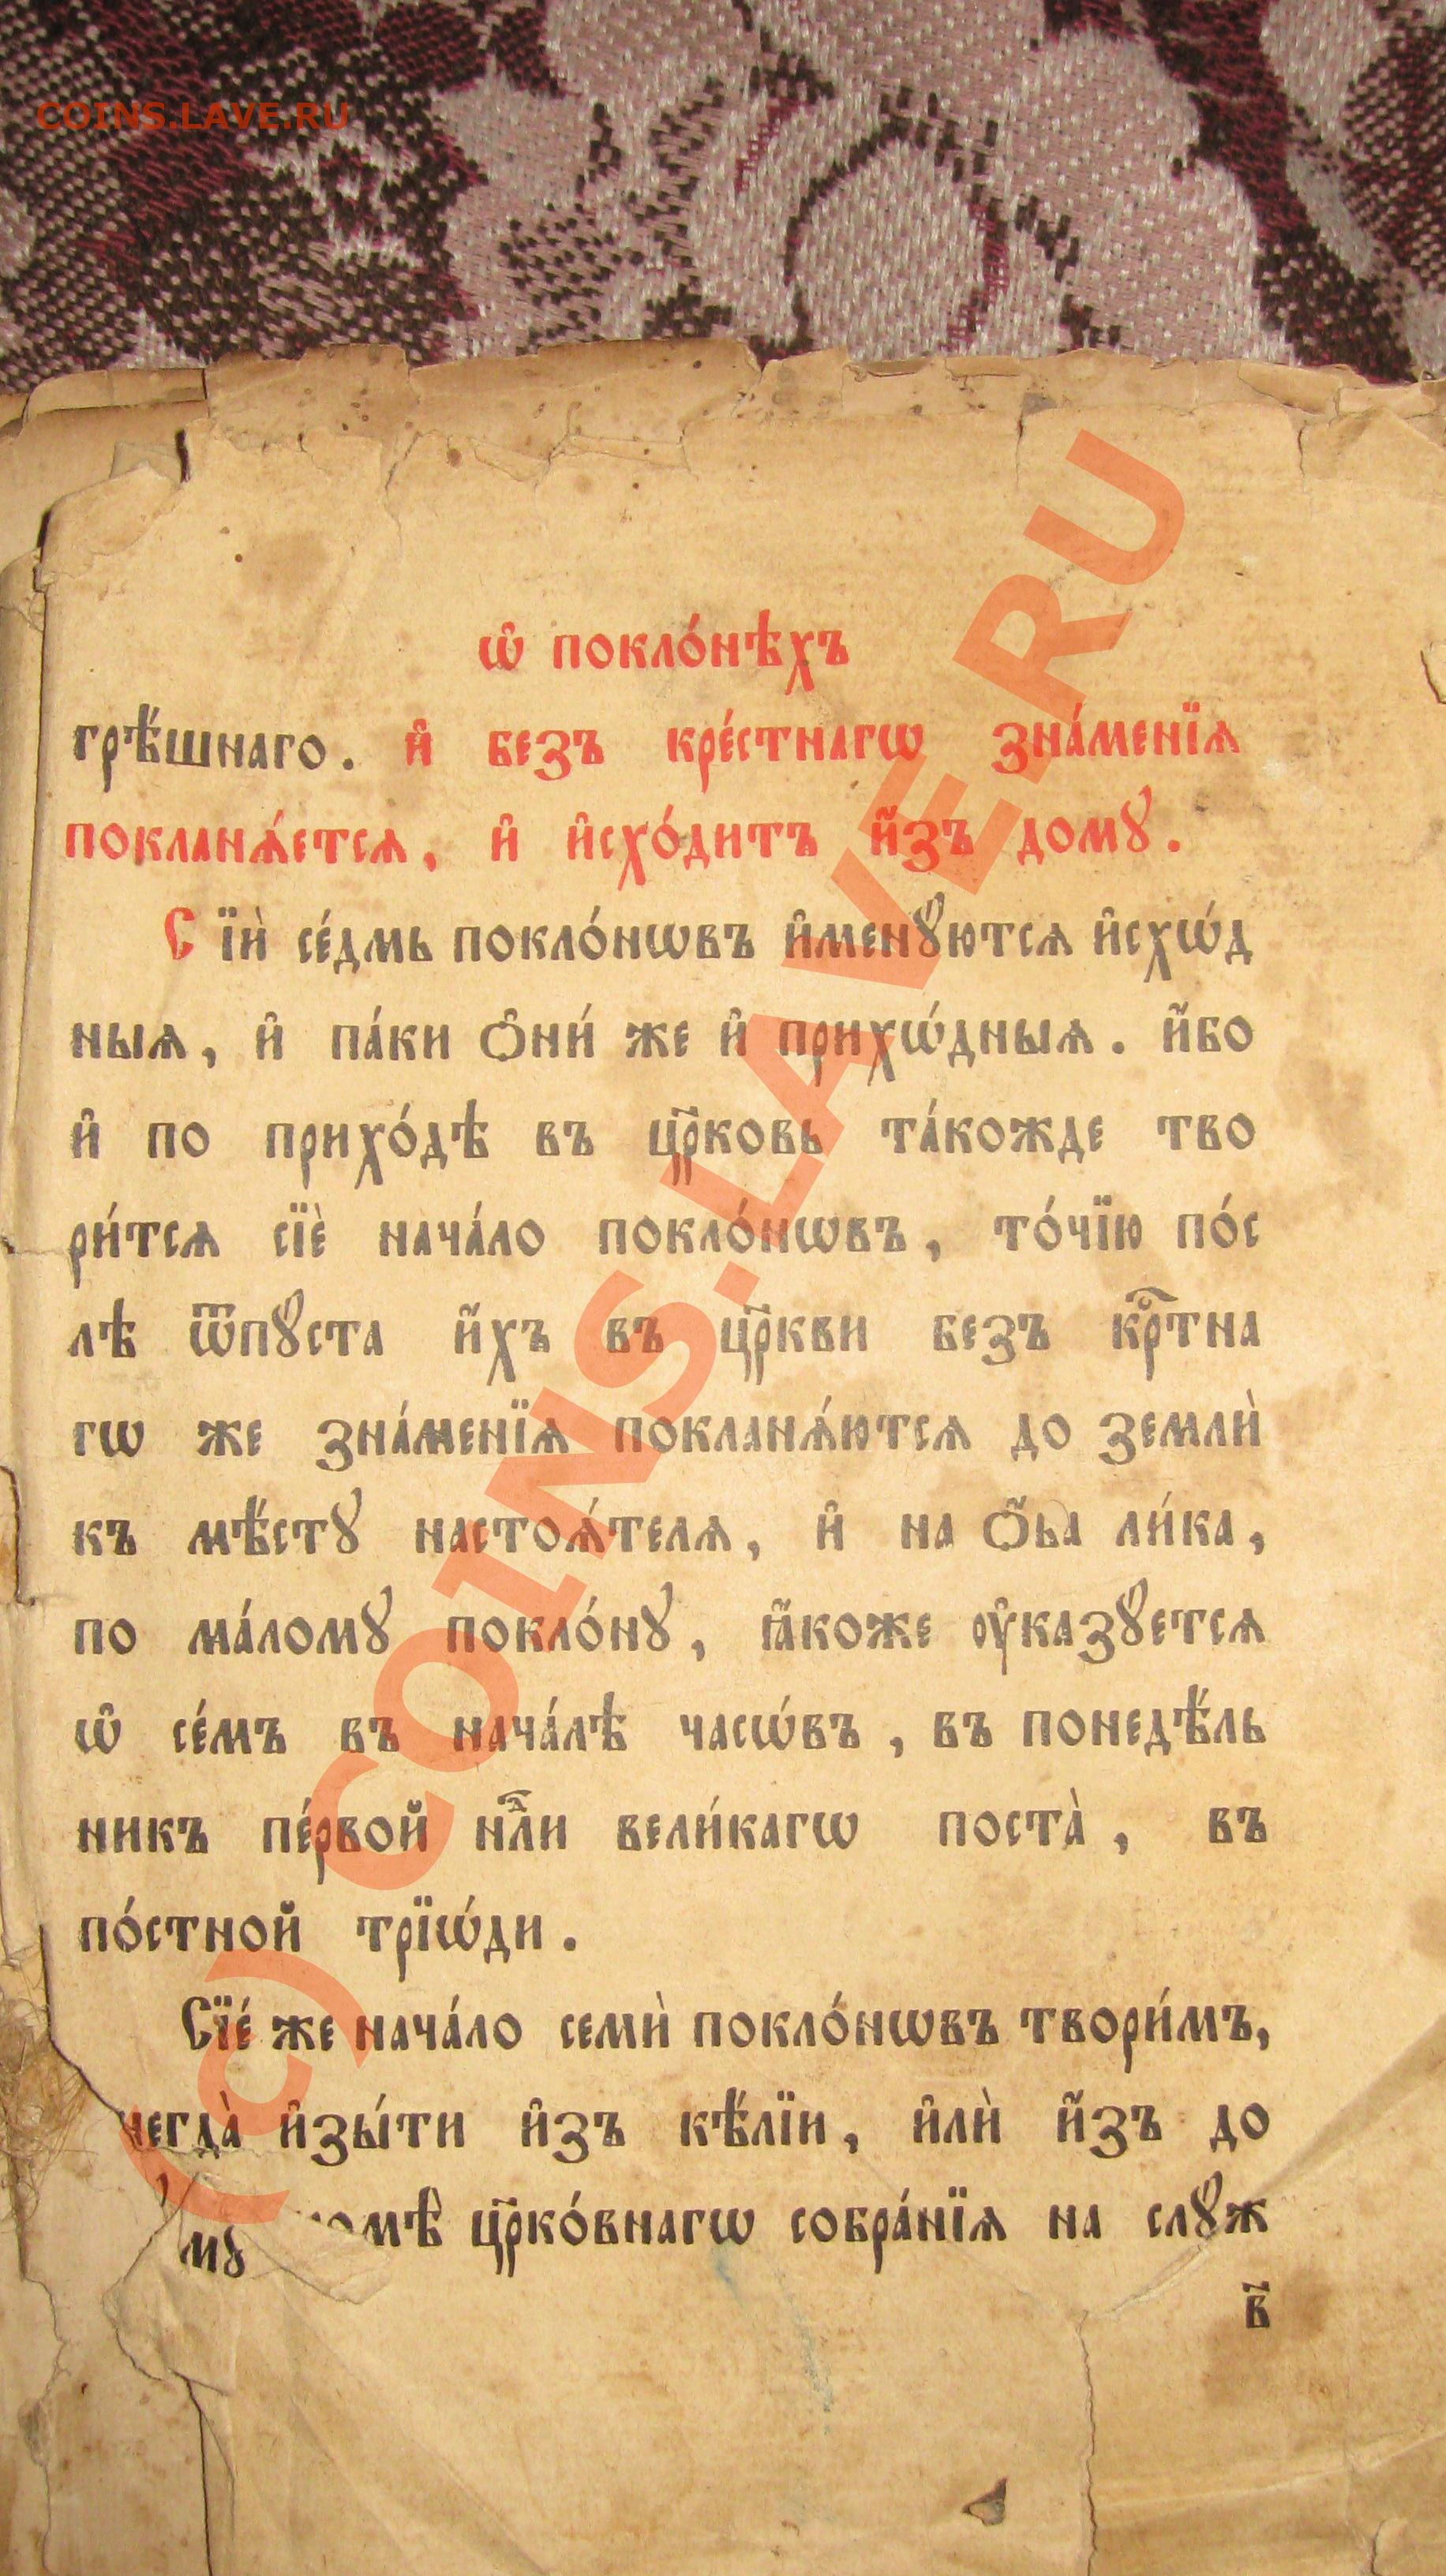 COINS.LAVE.RU
ѡ҆ покло́нѣхъ
грѣ́шнаго. и҆ без̾ кре́стнагѡ зна́менїѧ
покланѧ́етсѧ, и҆ и҆схо́дитъ и҆̀зъ домꙋ.
Сїѝ се́дмь покло́нѡвъ и҆менꙋ́ютсѧ и҆схѡ́д
ныѧ, и҆ па́ки ѻ҆ни́ же и҆ прихѡ́дныѧ. и҆́бо
и҆ по прихо́дѣ въ цр҃ковь та́кожде тво
ри́тсѧ сїѐ нача́ло покло́нѡвъ, то́чїю по́с
лѣ ѿпꙋста и҆́хъ въ цр҃кви безъ крⷭ҇тна
гѡ же зна́менїѧ покланѧ́ютсѧ до землѝ
къ мѣ́стꙋ настоѧ́телѧ, и҆ на ѻ҆́ба ли́ка,
по ма́ломꙋ покло́нꙋ, ꙗ҆́коже ᲂу҆казꙋ́етсѧ
ѡ҆ се́мъ въ нача́лѣ часѡ́въ, въ понедѣ́ль
никъ пе́рвой нⷣли вели́кагѡ поста̀, въ
по́стной трїѡ́ди.
Сїе́ же нача́ло семѝ покло́нѡвъ твори́мъ,
и҆зы́ти и҆зъ кѣ́лїи, и҆лѝ и҆́зъ до
мꙋ цр҃ко́внагѡ собра́нїѧ на слꙋ́ж
в҃
(C) COINS.LAVE.RU